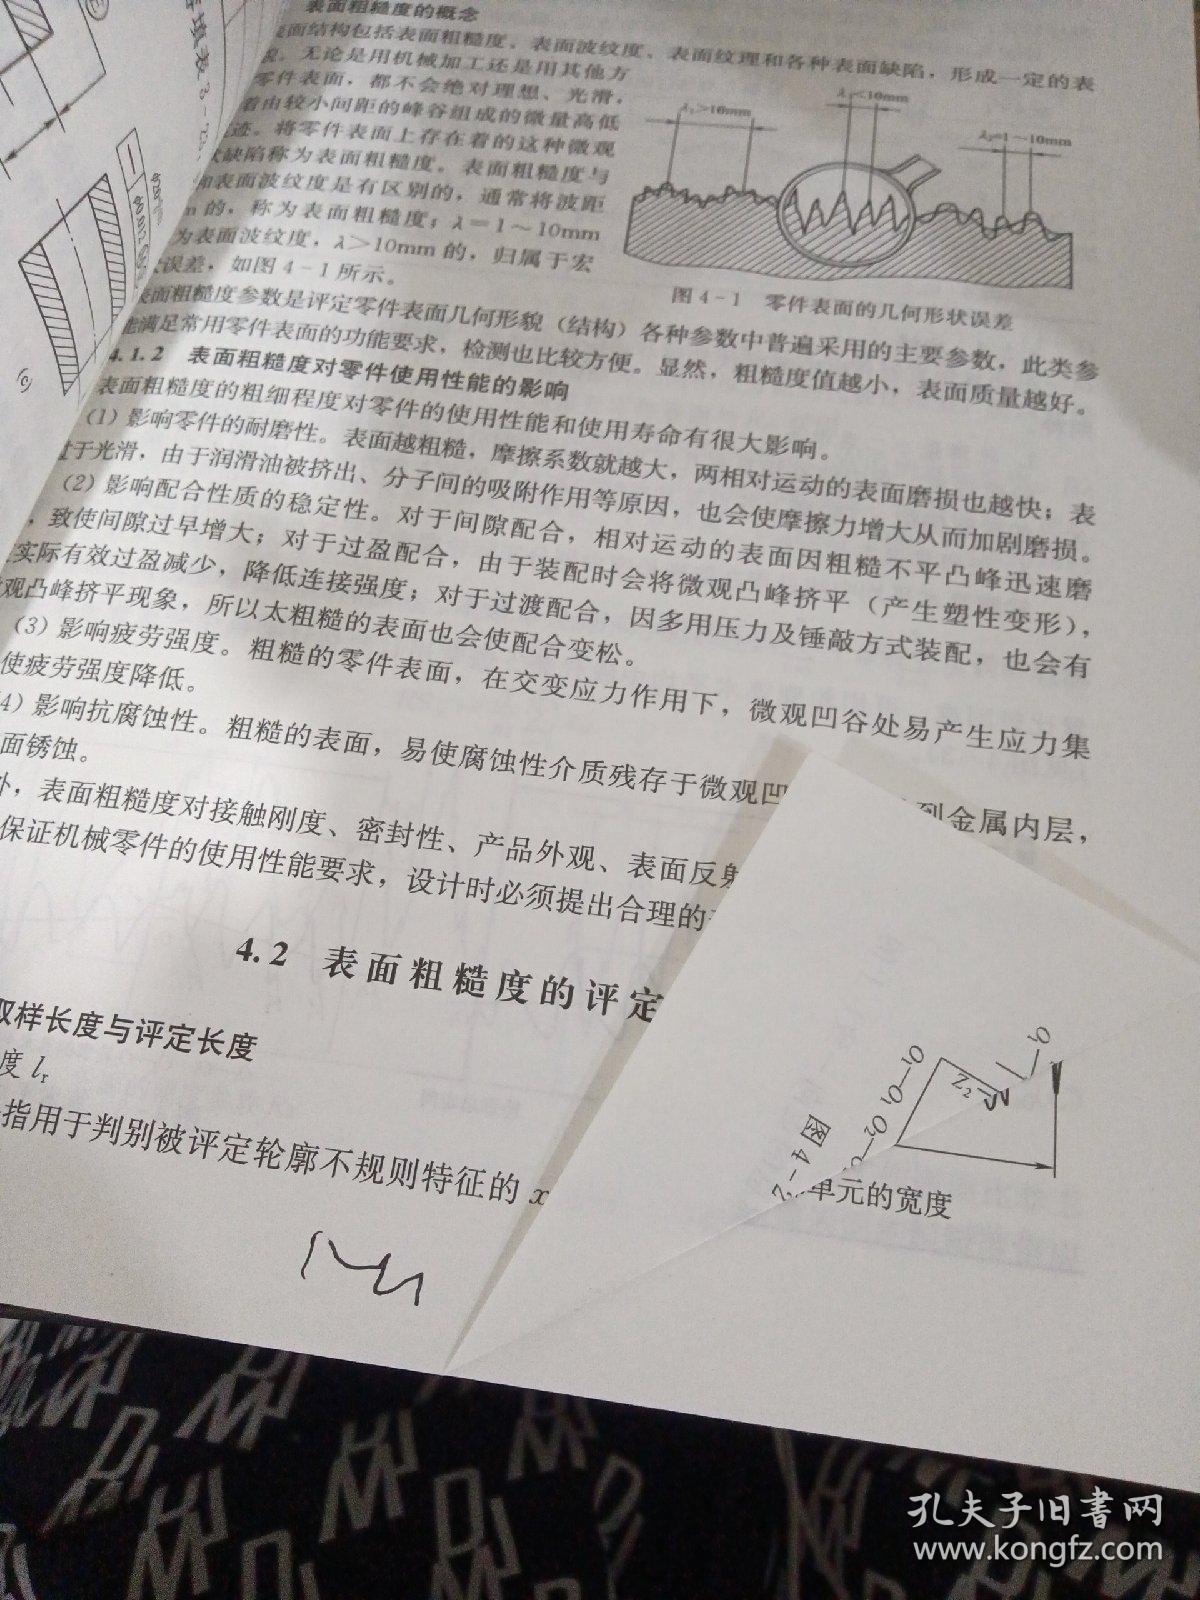 表面粗糙度的概念
面结构包括表面粗糙度、表面波纹度、表面纹理和各种表面缺陷，形成一定的表
无论是用机械加工还是用其他方
零件表面，都不会绝对理想、光滑，
着由较小间距的峰谷组成的微量高低
迹。将零件表面上存在着的这种微观
状缺陷称为表面粗糙度。表面粗糙度与
和表面波纹度是有区别的，通常将波距
的，称为表面粗糙度；λ＝1～10mm
为表面波纹度，λ＞10mm 的，归属于宏
误差，如图 4-1 所示。
λ₁＞10mm
＜10mm
＝1～10mm
图 4-1 零件表面的几何形状误差
表面粗糙度参数是评定零件表面几何形貌（结构）各种参数中普遍采用的主要参数，此类参
能满足常用零件表面的功能要求，检测也比较方便。显然，粗糙度值越小，表面质量越好。
4.1.2 表面粗糙度对零件使用性能的影响
表面粗糙度的粗细程度对零件的使用性能和使用寿命有很大影响。
(1) 影响零件的耐磨性。表面越粗糙，摩擦系数就越大，两相对运动的表面磨损也越快；表
过于光滑，由于润滑油被挤出、分子间的吸附作用等原因，也会使摩擦力增大从而加剧磨损。
(2) 影响配合性质的稳定性。对于间隙配合，相对运动的表面因粗糙不平凸峰迅速磨
，致使间隙过早增大；对于过盈配合，由于装配时会将微观凸峰挤平（产生塑性变形），
实际有效过盈减少，降低连接强度；对于过渡配合，因多用压力及锤敲方式装配，也会有
观凸峰挤平现象，所以太粗糙的表面也会使配合变松。
(3) 影响疲劳强度。粗糙的零件表面，在交变应力作用下，微观凹谷处易产生应力集
使疲劳强度降低。
4) 影响抗腐蚀性。粗糙的表面，易使腐蚀性介质残存于微观凹
到金属内层，
面锈蚀。
外，表面粗糙度对接触刚度、密封性、产品外观、表面反射
保证机械零件的使用性能要求，设计时必须提出合理的
4.2 表面粗糙度的评定
取样长度与评定长度
度 lr
指用于判别被评定轮廓不规则特征的 x
单元的宽度
图 4-2
O₁—O₁
O₂—
Z₂
孔夫子旧书网
www.kongfz.com